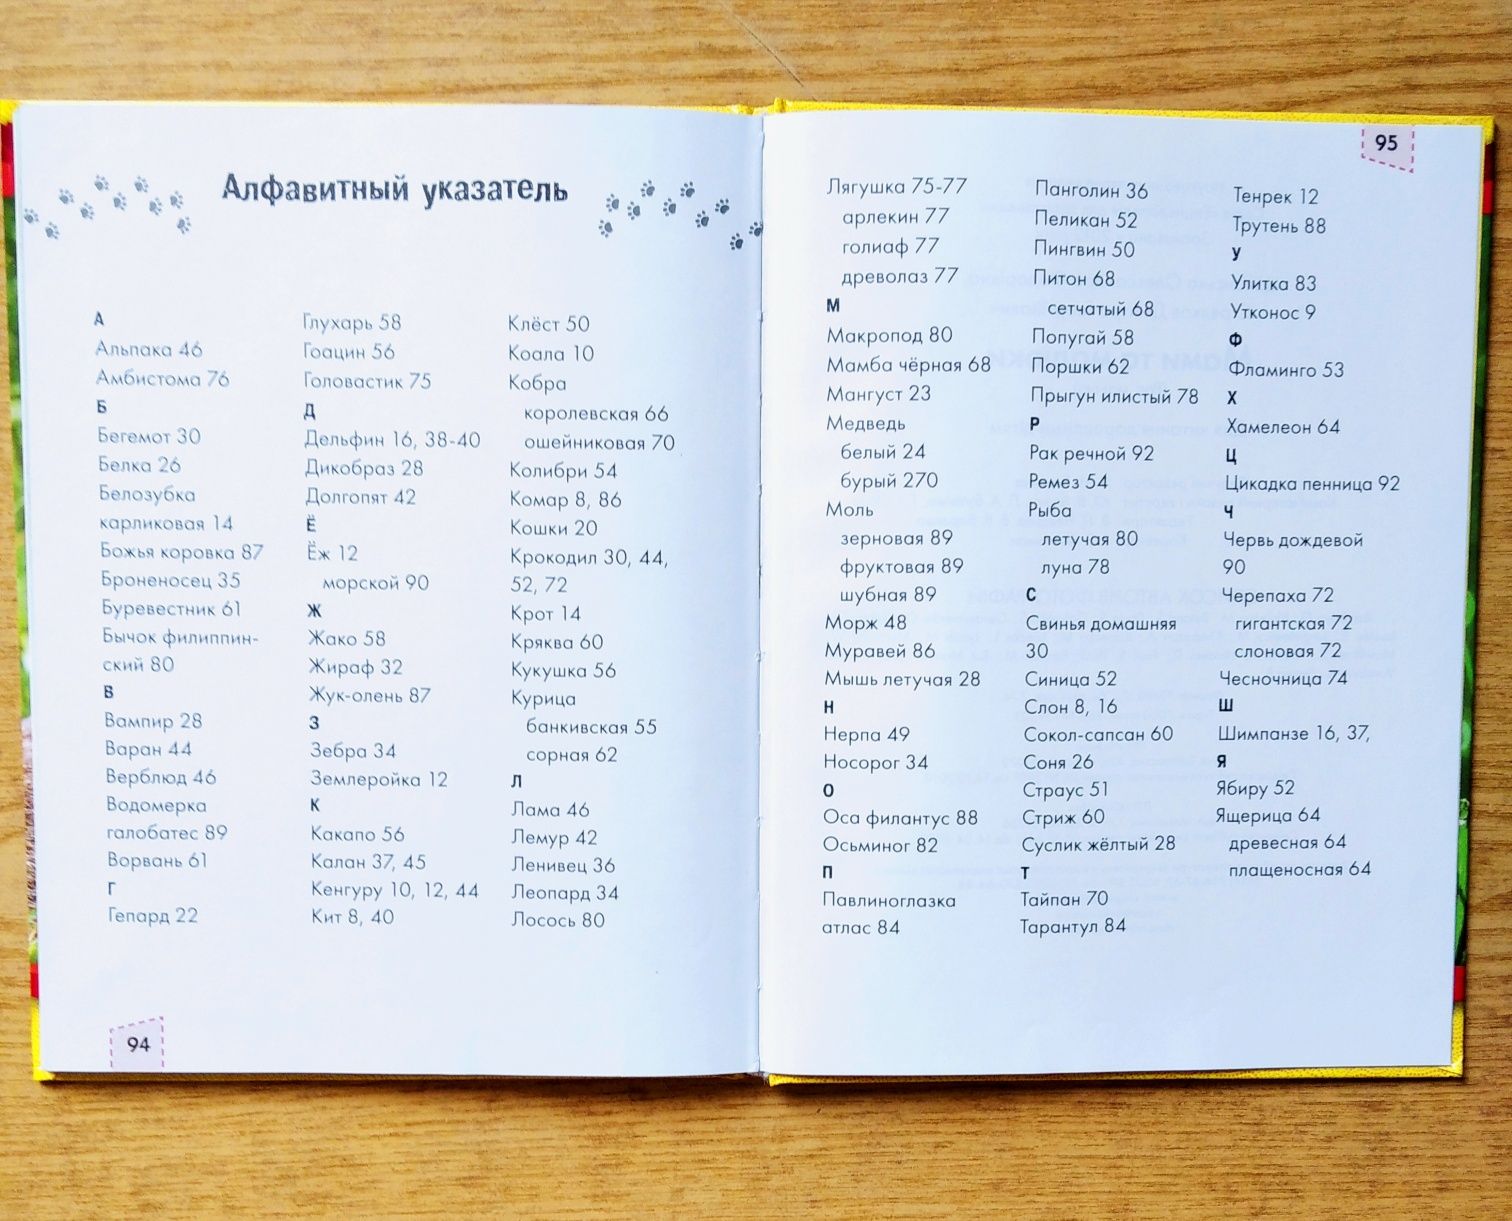 Алфавитный указатель
А
Альпака 46
Амбистома 76
Б
Бегемот 30
Белка 26
Белозубка
карликовая 14
Божья коровка 87
Броненосец 35
Буревестник 61
Бычок филиппин-
ский 80
В
Вампир 28
Варан 44
Верблюд 46
Водомерка
галобатес 89
Ворвань 61
Г
Гепард 22
Глухарь 58
Гоацин 56
Головастик 75
Д
Дельфин 16, 38-40
Дикобраз 28
Долгопят 42
Ё
Ёж 12
морской 90
Ж
Жако 58
Жираф 32
Жук-олень 87
З
Зебра 34
Землеройка 12
К
Какапо 56
Калан 37, 45
Кенгуру 10, 12, 44
Кит 8, 40
Клёст 50
Коала 10
Кобра
королевская 66
ошейниковая 70
Колибри 54
Комар 8, 86
Кошки 20
Крокодил 30, 44,
52, 72
Крот 14
Кряква 60
Кукушка 56
Курица
банкивская 55
сорная 62
Л
Лама 46
Лемур 42
Ленивец 36
Леопард 34
Лосось 80
94
95
Лягушка 75-77
арлекин 77
голиаф 77
древолаз 77
М
Макропод 80
Мамба чёрная 68
Мангуст 23
Медведь
белый 24
бурый 270
Моль
зерновая 89
фруктовая 89
шубная 89
Морж 48
Муравей 86
Мышь летучая 28
Н
Нерпа 49
Носорог 34
О
Оса филантус 88
Осьминог 82
П
Павлиноглазка
атлас 84
Панголин 36
Пеликан 52
Пингвин 50
Питон 68
сетчатый 68
Попугай 58
Поршки 62
Прыгун илистый 78
Р
Рак речной 92
Ремез 54
Рыба
летучая 80
луна 78
С
Свинья домашняя
30
Синица 52
Слон 8, 16
Сокол-сапсан 60
Соня 26
Страус 51
Стриж 60
Суслик жёлтый 28
Т
Тайпан 70
Тарантул 84
Тенрек 12
Трутень 88
У
Улитка 83
Утконос 9
Ф
Фламинго 53
Х
Хамелеон 64
Ц
Цикадка пенница 92
Ч
Червь дождевой
90
Черепаха 72
гигантская 72
слоновая 72
Чесночница 74
Ш
Шимпанзе 16, 37,
Я
Ябиру 52
Ящерица 64
древесная 64
плащеносная 64